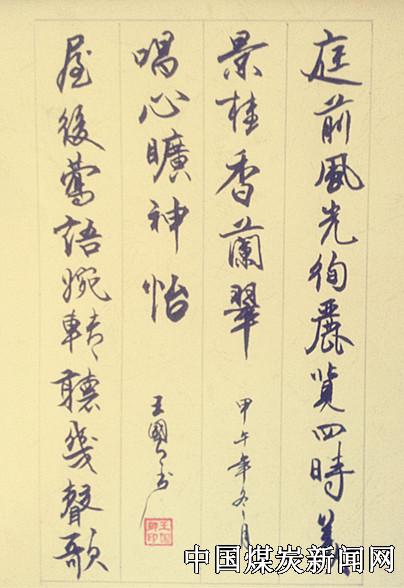 庭前風光絢麗覽四時美
景桂香蘭翠
甲午年冬月
屋後鶯語婉轉聽幾聲歌
唱心曠神怡
王國書
中国煤炭新闻网